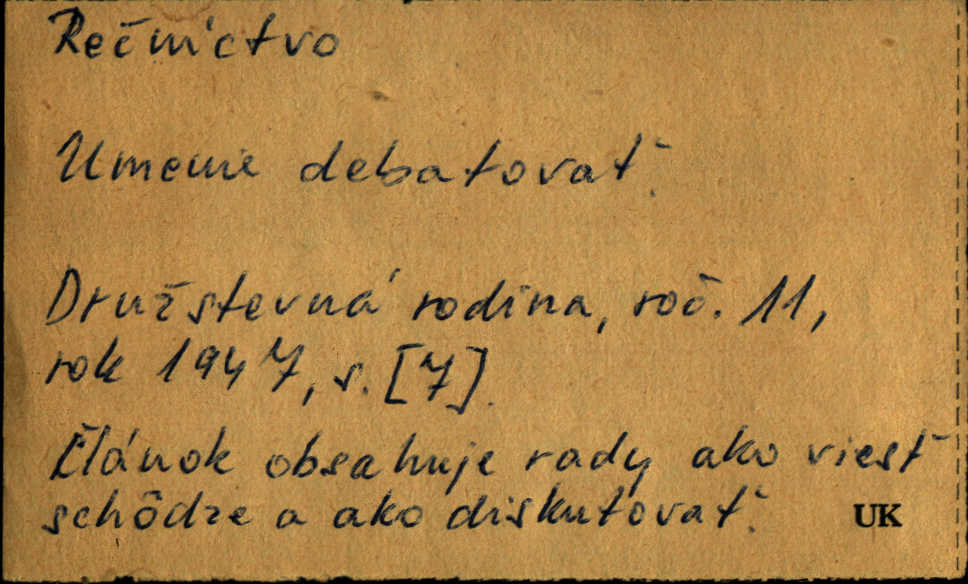 Rečníctvo
Umenie debatovať.
Družstevná rodina, roč. 11,
rok 1947, s. [7].
Článok obsahuje rady ako viesť
schôdze a ako diskutovať.
UK